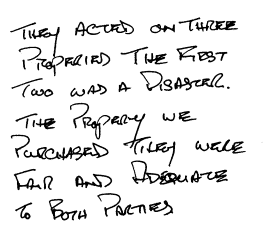 They acted on three
properied the first
two was a disaster.
The property we
purchased they were
fair and adequate
to both parties